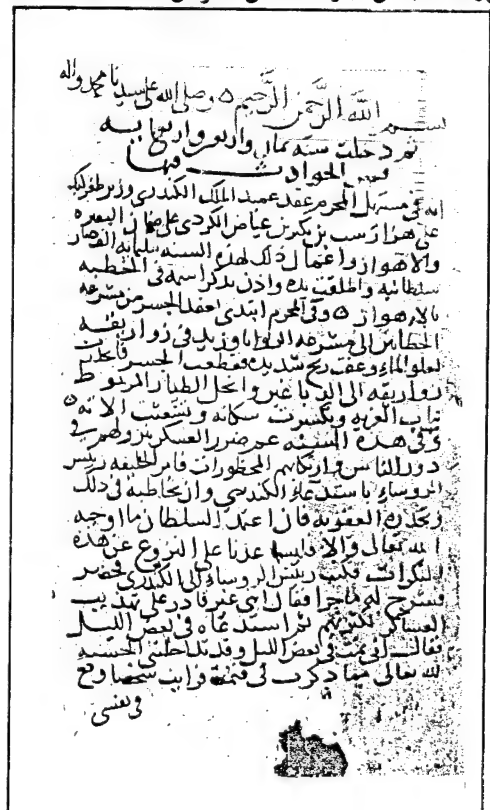 بسم الله الرحمن الرحيم ه وصلى الله على سيدنا محمد واله
ثم دخلت سنة ثمان واربعين واربعمايه
فمن الحوادث فيها
انه في مستهل المحرم عقد عميد الملك الكندري وزير طغرلبك
على هزارسب بن بنكير بن عياض الكردي على ضمان البصره
والاهواز واعمال ذلك لهذه السنه بثلثمايه الف دينار
سلطانيه واطلقت يده واذن بذكر اسمه في الخطبه
بالاهواز ه وفي المحرم ابتدى بعقد الجسر من مشرعه
الحطابين الى مشرعه الروايا وزيد في زواريقه
لعلو الماء وعقب ريح شديده فقطعت الجسر فانحدرت
زواريقه الى الدباغين وانحل الطيار المربوط
بباب الغربه وتكسرت سكانه وتشعبت الاته ه
وفي هذه السنه عم ضرر العسكر بنزولهم في
دور الناس وارتكابهم المحظورات فامر الخليفه رئيس
الروساء باستدعاء الكندري وان يخاطبه في ذلك
ويحذره العقوبه فان اعتمد السلطان ما اوجبه
الله تعالى والا فليساعدنا على النزوح عن هذه
المنكرات فكتب رئيس الروساء الى الكندري فحضر
فشرح له ما جرا فقال انني غير قادر على تهذيب
العساكر لكثرتهم ثم استدعاه في بعض الليل
فقال اني نمت في بعض الليل وقد تداخلتني الخشيه
لله تعالى مما ذكرت لي فنمت فرايت شخصا وقع
في نفسي